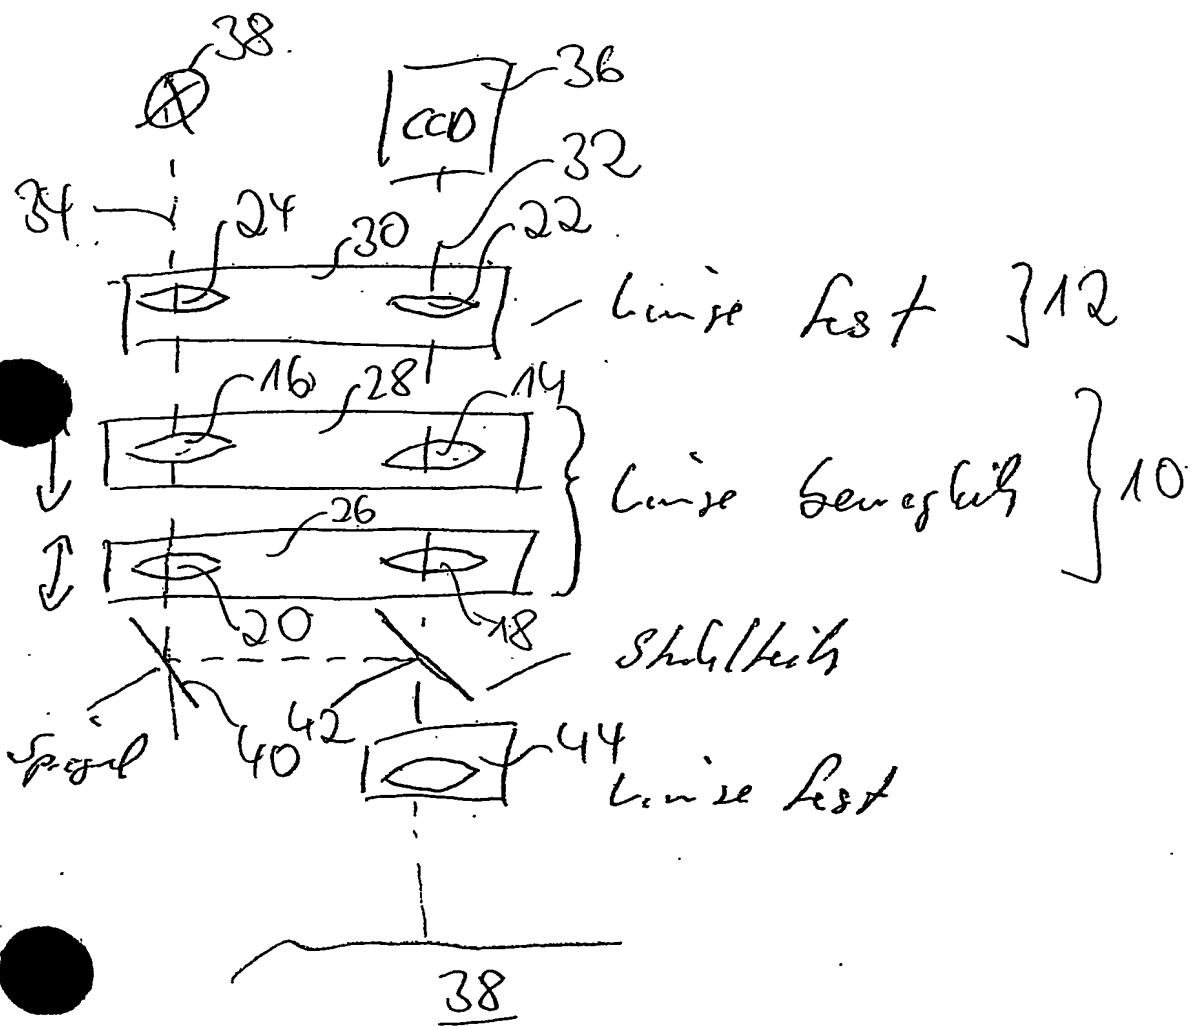 38
36
CCD
32
34
24
30
22
Linse fest
12
16
28
14
Linse beweglich
10
26
20
18
Strahlteiler
42
Spiegel
40
44
Linse fest
38